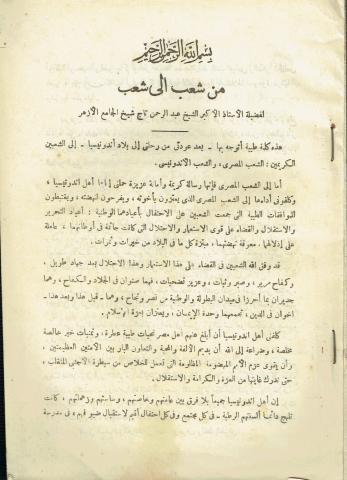 بسم الله الرحمن الرحيم
من شعب الى شعب
لفضيلة الأستاذ الأكبر الشيخ عبد الرحمن تاج شيخ الجامع الأزهر
هذه كلمة طيبة أتوجه بها - بعد عودتى من رحلتى إلى بلاد أندونيسيا - إلى الشعبين
الكريمين: الشعب المصرى، والشعب الأندونيسى.
أما إلى الشعب المصرى فإنها رسالة كريمة وأمانة عزيزة حملنى إياها أهل اندونيسيا،
وكلفونى أداءها إلى الشعب المصرى الذى يعتزون بأخوته، ويفرحون لنهضته، ويغتبطون
للموافقات الطيبة التى جمعت الشعبين على الاحتفال بأعيادهما الوطنية: أعياد التحرير
والاستقلال والقضاء على قوى الاستعمار والاحتلال التى كانت جاثمة فى أوطانهما، عاملة
على إذلالها، معوقة نهضتهما، مبتزة كل ما فى البلاد من خيرات وثمرات.
قد وفق الله الشعبين فى القضاء على هذا الاستعمار وهذا الاحتلال بعد جهاد طويل،
وكفاح مرير، وصبر وثبات، وعزيز تضحيات، فهما صنوان فى الجلاد والكفاح، وهما
جديران بما أحرزا فى ميدان البطولة والوطنية من نصر ونجاح، وهما - قبل هذا وبعد هذا -
اخوان فى الدين، تجمعهما وحدة الإيمان، ويعزان بعزة الإسلام.
كلفنى أهل اندونيسيا أن أبلغ عنهم أهل مصر تحيات طيبة عطرة، وتمنيات خير خالصة
مخلصة، وضراعة إلى الله أن يديم الألفة والمحبة والتعاون البار بين الأمتين العظيمتين،
وأن يقوى عزم الأمم المهضومة المظلومة التى تعمل للخلاص من سيطرة الأجنبى المتغلب،
حتى تدرك غايتها من العزة والكرامة والاستقلال.
إن أهل اندونيسيا جميعاً بلا فرق بين عامتهم وخاصتهم، وساستهم وزعمائهم، كانت
تلهج دائماً ألسنتهم الرطبة - فى كل مجتمع وفى كل احتفال أقيم لاستقبال ضيوفهم، فى مدرسة